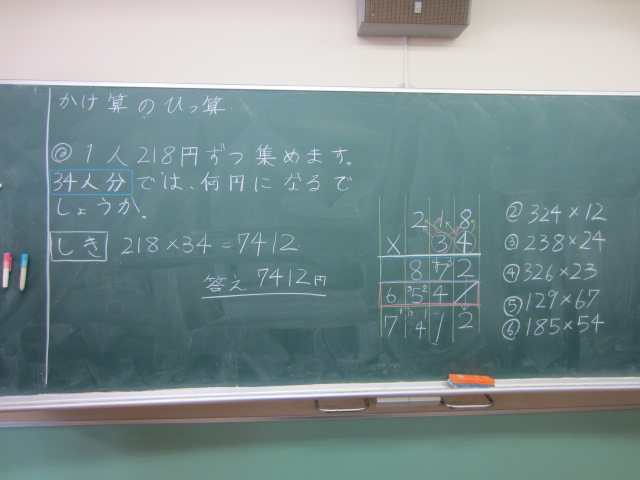 かけ算のひっ算
@ 1人218円ずつ集めます。
34人分では、何円になるで
しょうか。
しき 218×34=7412
答え 7412円
218
×34
872
654
7412
② 324×12
③ 238×24
④ 326×23
⑤ 129×67
⑥ 185×54